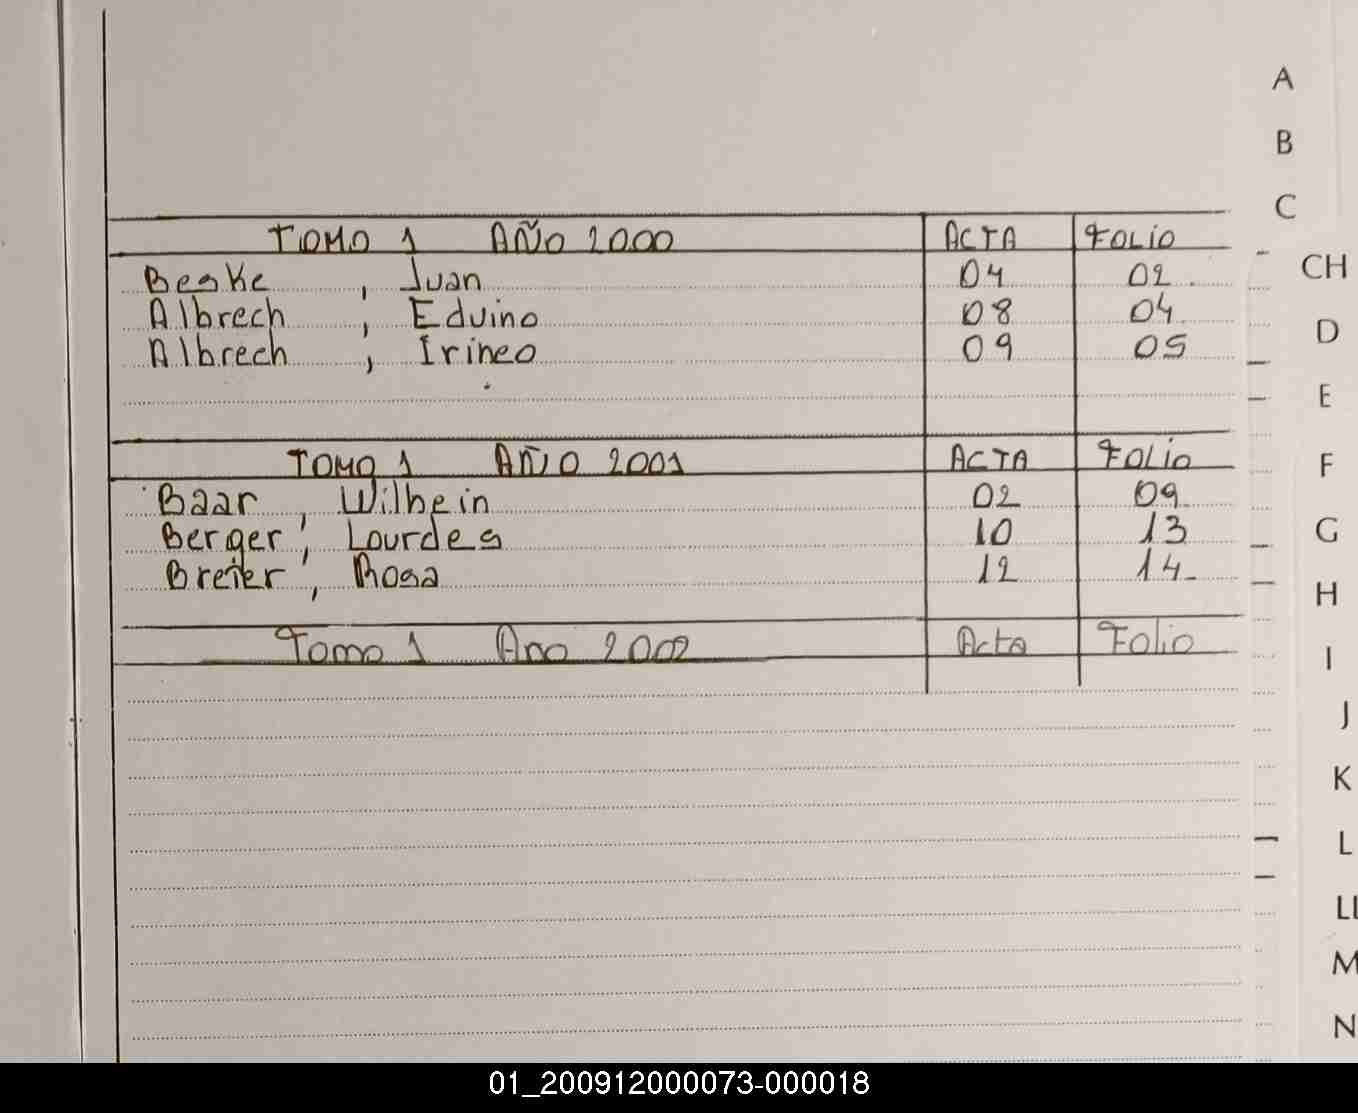 TOMO 1 AÑO 2000 ACTA FOLIO
Beske , Juan 04 02
Albrech , Eduino 08 04
Albrech , Irineo 09 05
TOMO 1 AÑO 2001 ACTA FOLIO
Baar , Wilhein 02 09
Berger , Lourdes 10 13
Breier , Rosa 12 14
Tomo 1 Ano 2002 Acta Folio
A
B
C
CH
D
E
F
G
H
I
J
K
L
LL
M
N
01_200912000073-000018